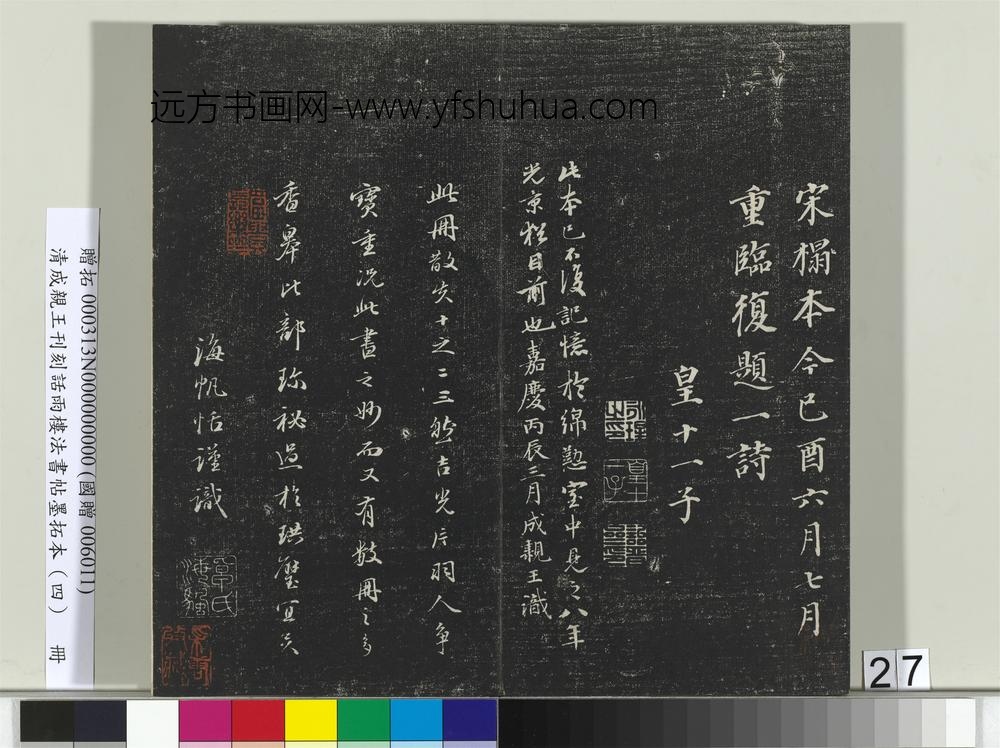 远方书画网-www.yfshuhua.com
宋榻本今己酉六月七月
重臨復題一詩
皇十一子
此本已不復記憶於綿懃室中見之八年
光京猶目前也嘉慶丙辰三月成親王識
此冊散失十之二三然吉光片羽人爭
寶重況此書之妙而又有數冊之多
香皋比部珍祕過於珙璧宜矣
海帆恬謹識
贈拓 000313N000000000(國贈 006011)
清成親王刊刻話雨樓法書帖墨拓本（四） 冊
27